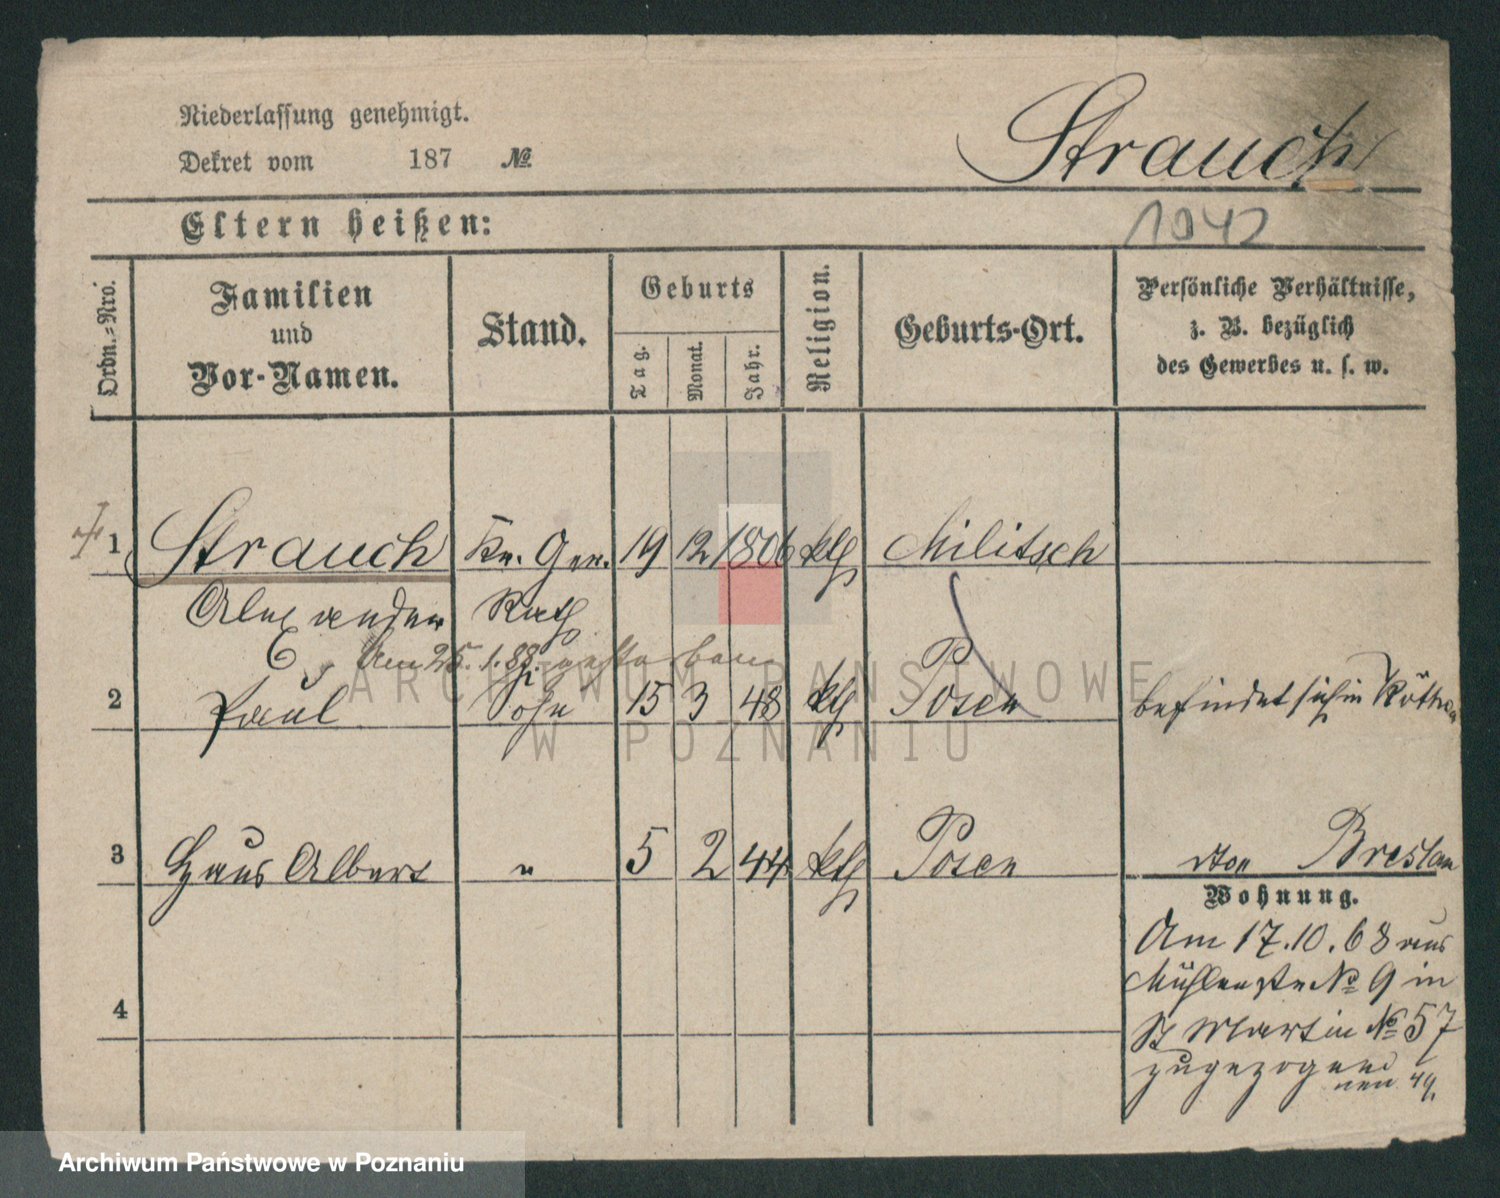 Niederlassung genehmigt.
Dekret vom 187 №
Strauch
Eltern heißen:
1042
Ordn.-Nro.
Familien und Vor-Namen.
Stand.
Geburts
Tag.
Monat.
Jahr.
Religion.
Geburts-Ort.
Persönliche Verhältnisse,
z. B. bezüglich
des Gewerbes u. s. w.
1 Strauch Kr. Ger. 19 12 1806 kth Militsch
Alexander Rath
Am 25.1.88. gestorben
2 Paul Sohn 15 3 48 kth Posen befindet sich in Köthen
3 Hans Albert " 5 2 44 kth Posen Breslau
Wohnung.
Am 17.10.68 aus
Mühlenstr № 9 in
St Martin № 57
zugezogen
neu 49.
4
ARCHIWUM PAŃSTWOWE
W POZNANIU
Archiwum Państwowe w Poznaniu